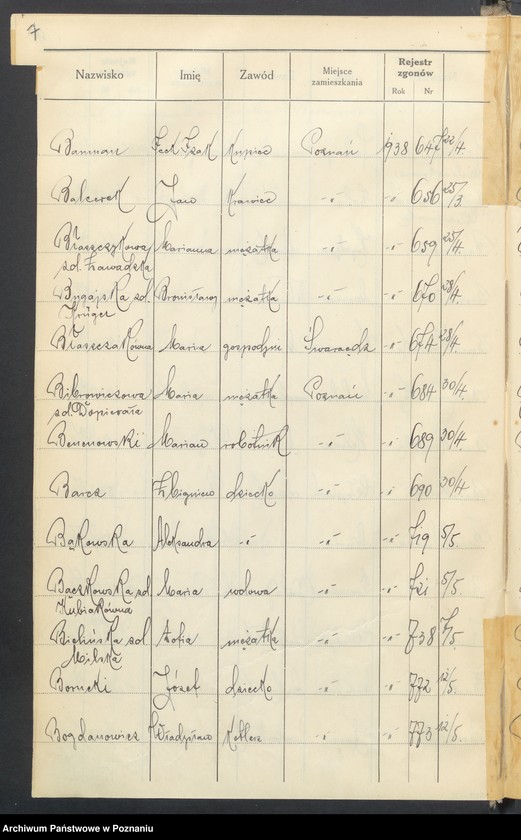 7
Nazwisko Imię Zawód Miejsce zamieszkania Rejestr zgonów
Rok Nr
Bamman Icek Izak Kupiec Poznań 1938 647 22/4.
Balcerek Jan Krawiec -"- -"- 656 25/3.
Błaszczykowa Marianna mężatka -"- -"- 659 25/4.
zd. Zawadzka
Bugajska zd. Bronisława mężatka -"- -"- 670 28/4.
Krüger
Błaszczakówna Maria gospodyni Swarzędz -"- 674 28/4.
Bibrowiczowa Maria mężatka Poznań -"- 684 30/4.
zd. Dopierała
Benenowski Marian robotnik -"- -"- 689 30/4.
Barcz Zbigniew dziecko -"- -"- 690 30/4
Bąkowska Aleksandra -"- -"- -"- 719 5/5.
Bączkowska zd. Maria wdowa -"- -"- 721 5/5.
Kubiakówna
Bielińska zd. Zofia mężatka -"- -"- 738 7/5.
Milska
Borncki Józef dziecko -"- -"- 772 12/5.
Bogdanowicz Władysław -"- -"- 773 12/5.
Archiwum Państwowe w Poznaniu